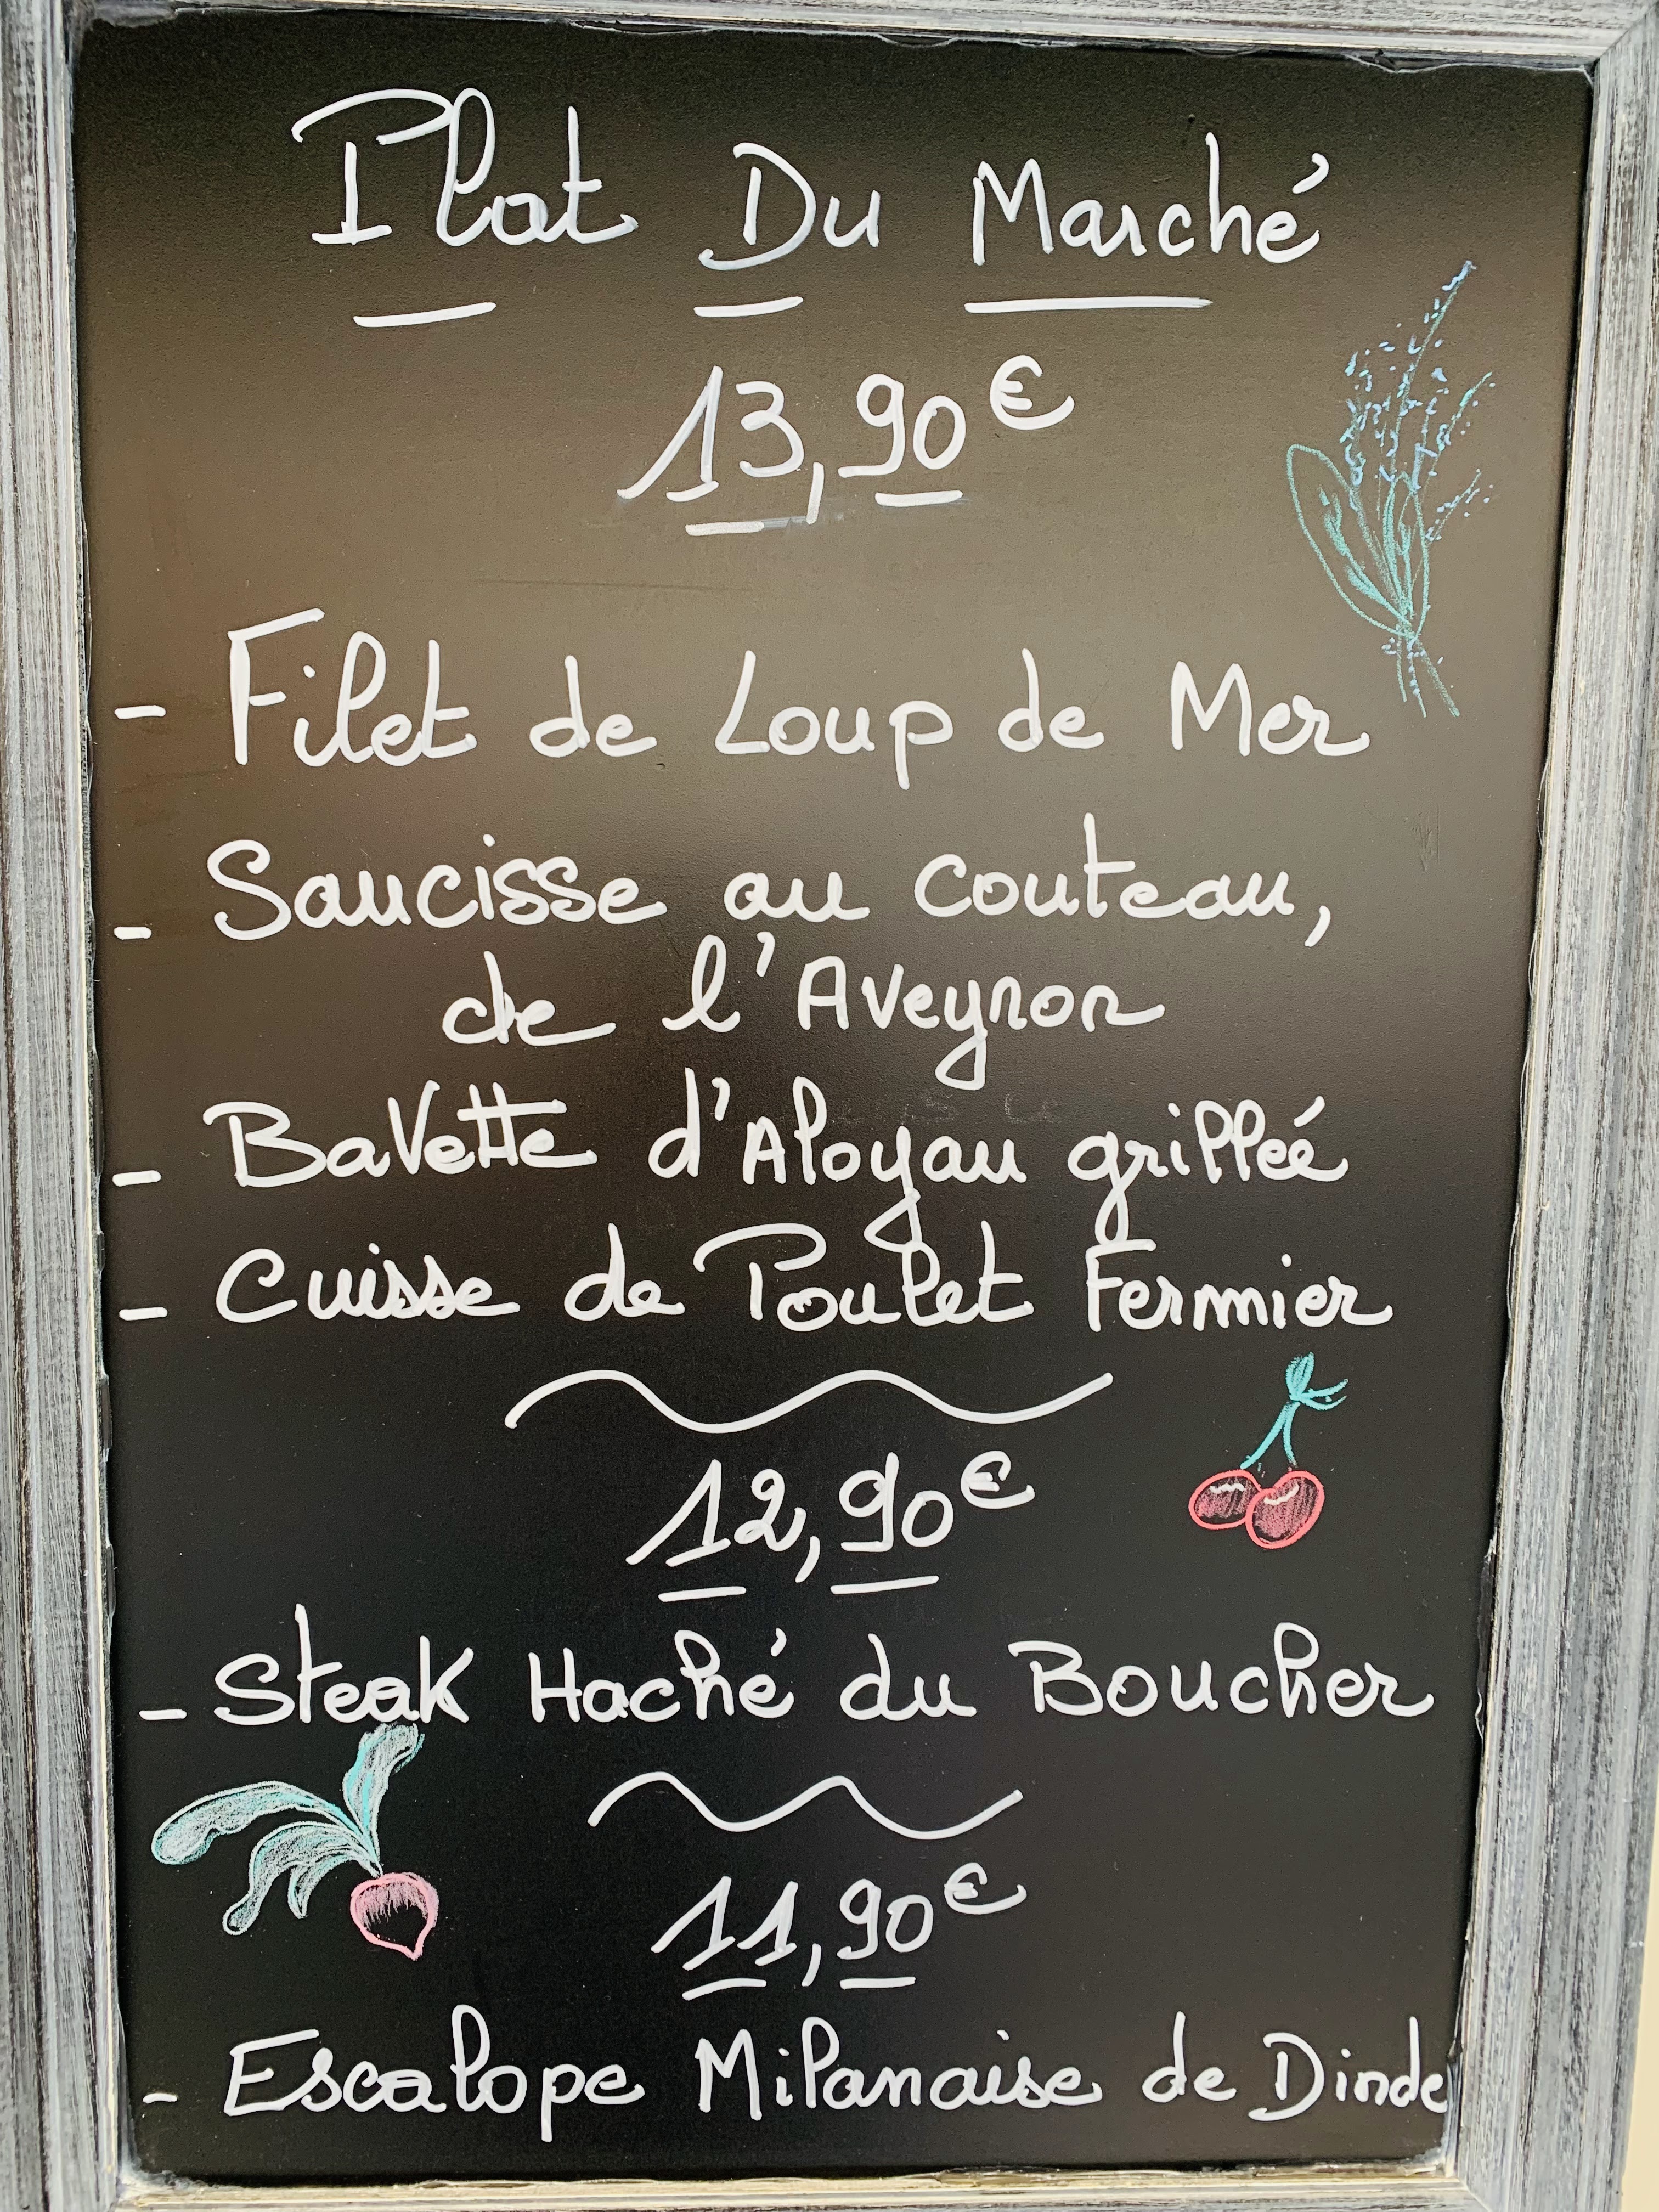 Plat Du Marché
13,90€
- Filet de Loup de Mer
- Saucisse au couteau,
de l'Aveyron
- Bavette d'Aloyau grilleé
- Cuisse de Poulet Fermier
12,90€
- Steak Haché du Boucher
11,90€
- Escalope Milanaise de Dinde